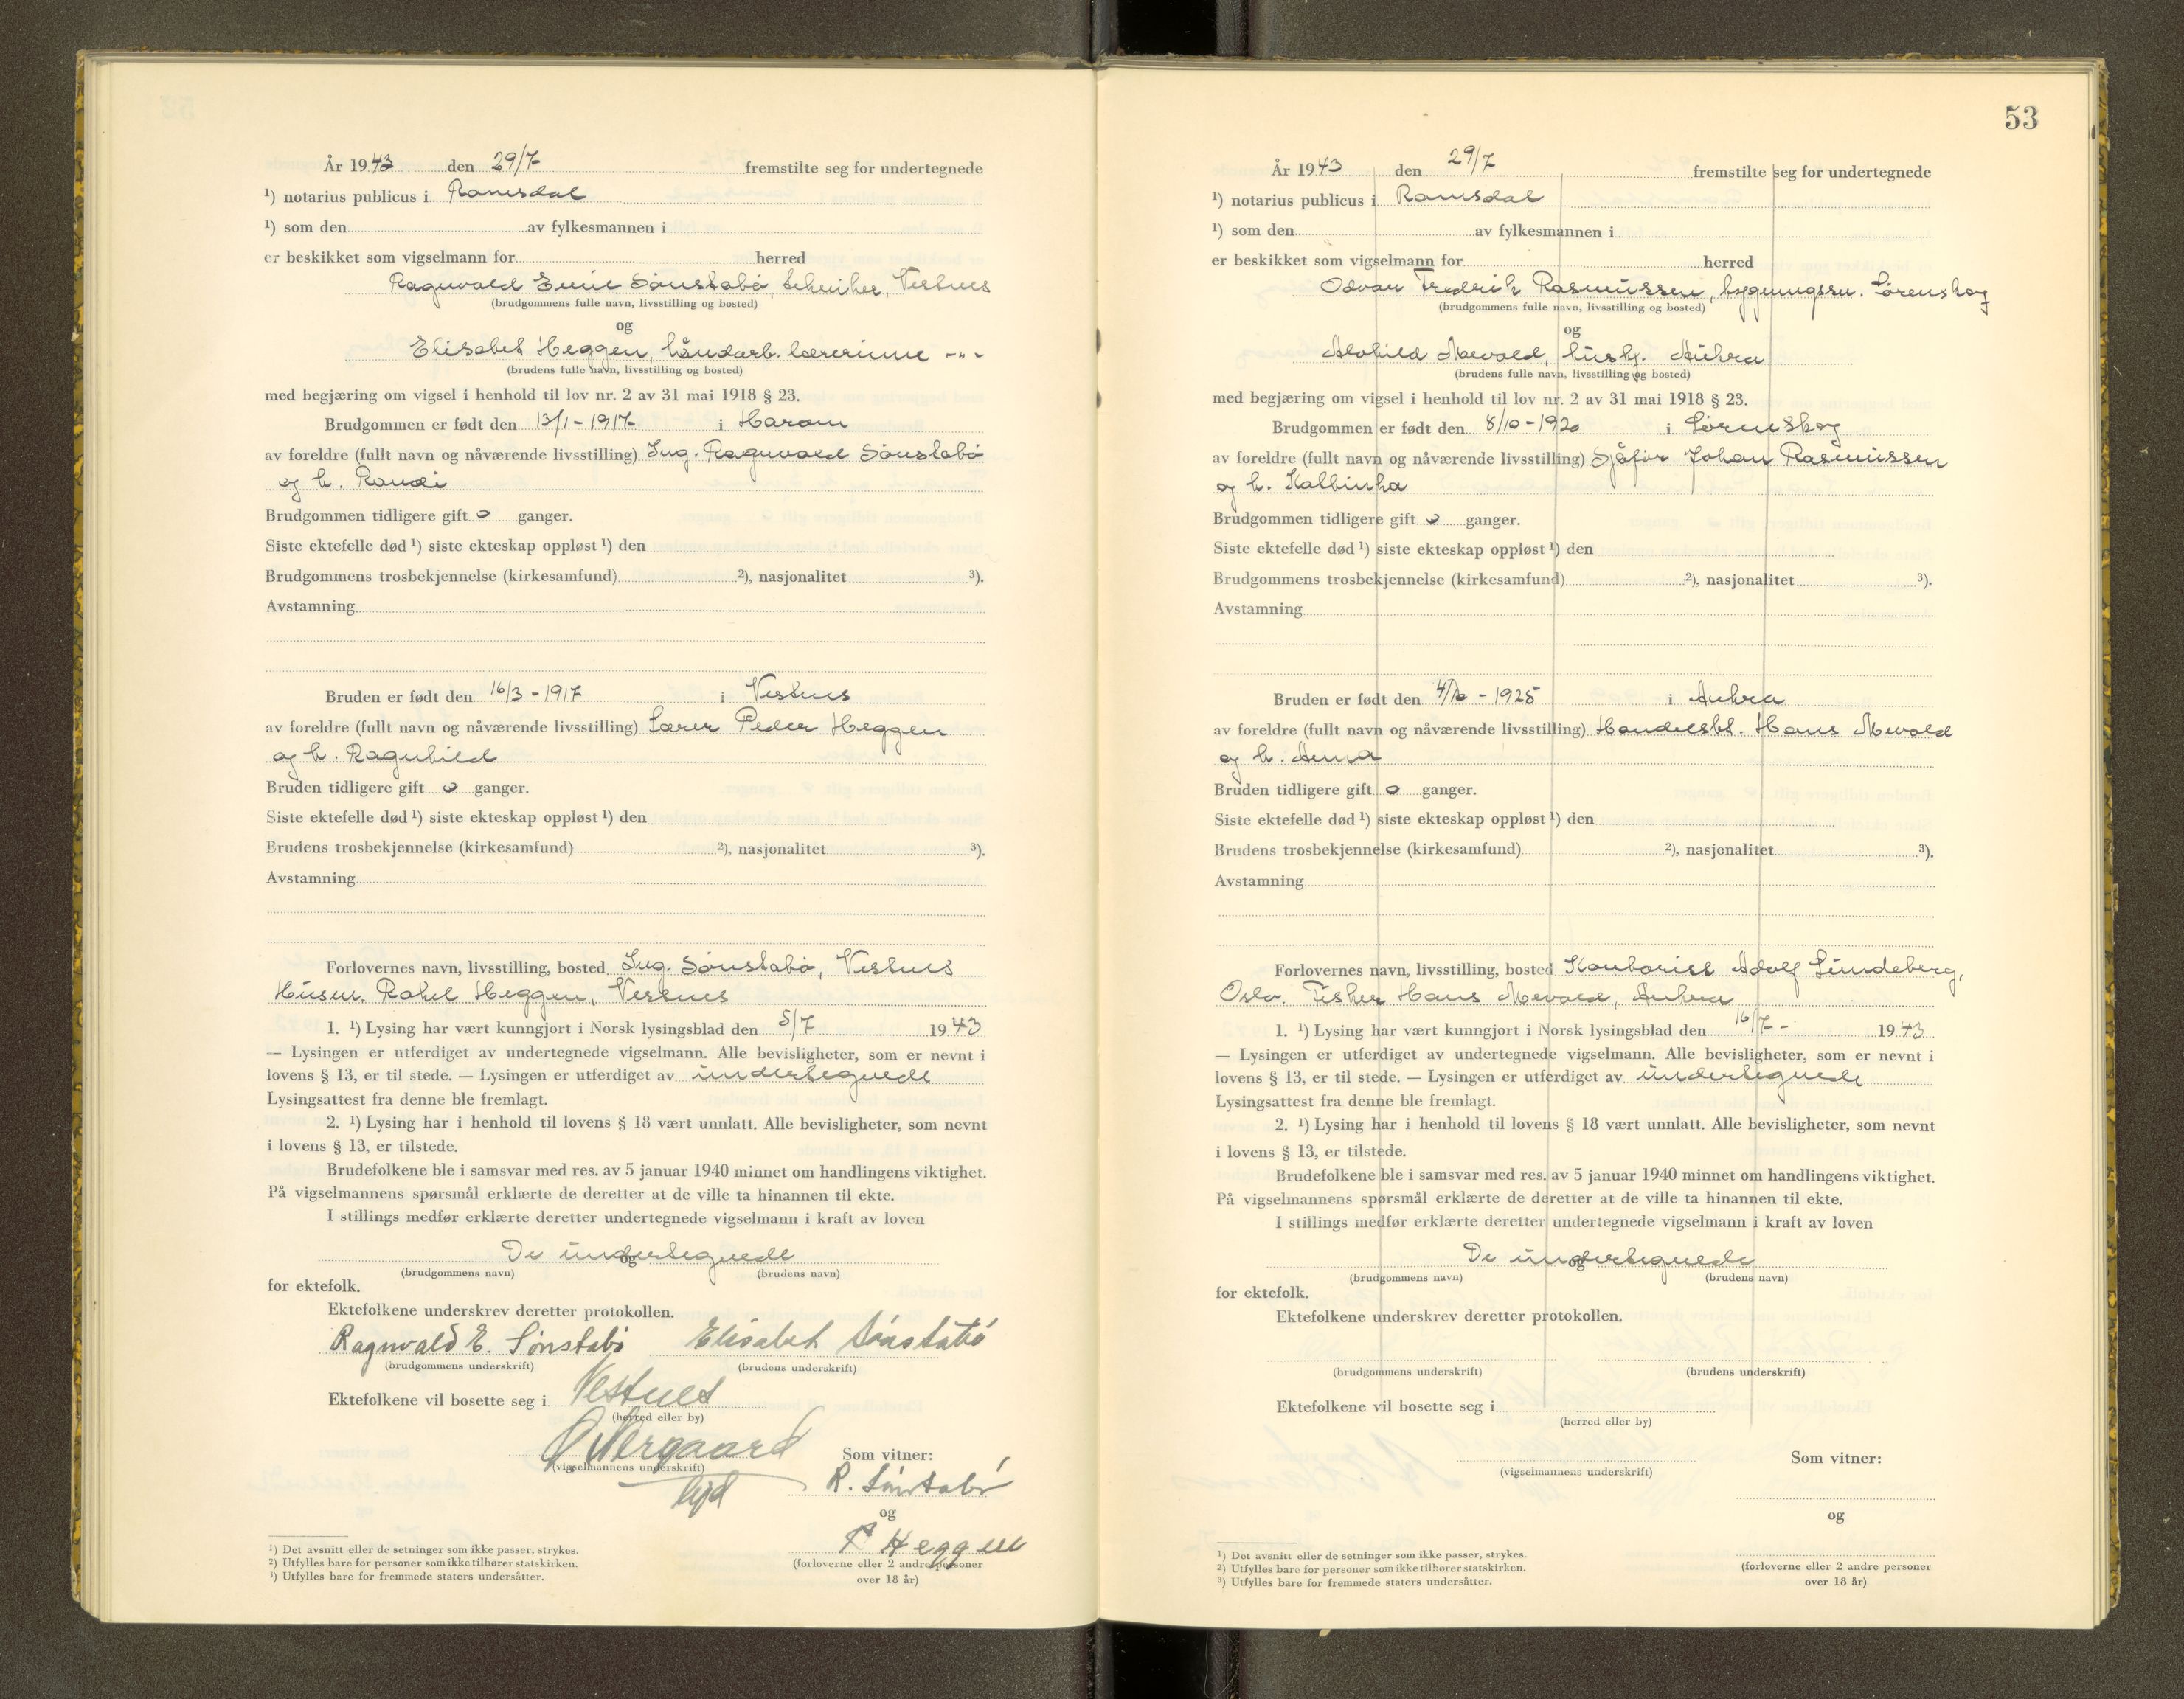 År 1943 den 29/7 fremstilte seg for undertegnede
¹) notarius publicus i Romsdal
¹) som den av fylkesmannen i
er beskikket som vigselmann for herred
Ragnvald Emil Sønstabø, tekniker, Vestnes
(brudgommens fulle navn, livsstilling og bosted)
og
Elisabet Heggen, håndarb. lærerinne -"-
(brudens fulle navn, livsstilling og bosted)
med begjæring om vigsel i henhold til lov nr. 2 av 31 mai 1918 § 23.
Brudgommen er født den 13/1 - 1917 i Haram
av foreldre (fullt navn og nåværende livsstilling) Ing. Ragnvald Sønstabø
og h. Randi
Brudgommen tidligere gift 0 ganger.
Siste ektefelle død ¹) siste ekteskap oppløst ¹) den
Brudgommens trosbekjennelse (kirkesamfund) ²), nasjonalitet ³).
Avstamning
Bruden er født den 16/3 - 1917 i Vestnes
av foreldre (fullt navn og nåværende livsstilling) Lærer Peder Heggen
og h. Ragnhild
Bruden tidligere gift 0 ganger.
Siste ektefelle død ¹) siste ekteskap oppløst ¹) den
Brudens trosbekjennelse (kirkesamfund) ²), nasjonalitet ³).
Avstamning
Forlovernes navn, livsstilling, bosted Ing. Sønstabø, Vestnes
Husm. Rakel Heggen, Vestnes
1. ¹) Lysing har vært kunngjort i Norsk lysingsblad den 5/7 1943
— Lysingen er utferdiget av undertegnede vigselmann. Alle bevisligheter, som er nevnt i
lovens § 13, er til stede. — Lysingen er utferdiget av undertegnede
Lysingsattest fra denne ble fremlagt.
2. ¹) Lysing har i henhold til lovens § 18 vært unnlatt. Alle bevisligheter, som nevnt
i lovens § 13, er tilstede.
Brudefolkene ble i samsvar med res. av 5 januar 1940 minnet om handlingens viktighet.
På vigselmannens spørsmål erklærte de deretter at de ville ta hinannen til ekte.
I stillings medfør erklærte deretter undertegnede vigselmann i kraft av loven
De undertegnede
og
(brudgommens navn) (brudens navn)
for ektefolk.
Ektefolkene underskrev deretter protokollen.
Ragnvald E. Sønstabø Elisabet Sønstabø
(brudgommens underskrift) (brudens underskrift)
Ektefolkene vil bosette seg i Vestnes
(herred eller by)
Som vitner:
(vigselmannens underskrift)
R. Sønstabø
og
P Heggen
(forloverne eller 2 andre personer
over 18 år)
¹) Det avsnitt eller de setninger som ikke passer, strykes.
²) Utfylles bare for personer som ikke tilhører statskirken.
³) Utfylles bare for fremmede staters undersåtter.
53
År 1943 den 29/7 fremstilte seg for undertegnede
¹) notarius publicus i Romsdal
¹) som den av fylkesmannen i
er beskikket som vigselmann for herred
Odvar Fredrik Rasmussen, bygningssn. Lørenskog
(brudgommens fulle navn, livsstilling og bosted)
og
Alvhild Mevold, hush. Aukra
(brudens fulle navn, livsstilling og bosted)
med begjæring om vigsel i henhold til lov nr. 2 av 31 mai 1918 § 23.
Brudgommen er født den 8/10 - 1920 i Lørenskog
av foreldre (fullt navn og nåværende livsstilling) Sjåfør Johan Rasmussen
og h.
Brudgommen tidligere gift 0 ganger.
Siste ektefelle død ¹) siste ekteskap oppløst ¹) den
Brudgommens trosbekjennelse (kirkesamfund) ²), nasjonalitet ³).
Avstamning
Bruden er født den - 1925 i Aukra
av foreldre (fullt navn og nåværende livsstilling) Handelsbt. Hans Mevold
og h. Anna
Bruden tidligere gift 0 ganger.
Siste ektefelle død ¹) siste ekteskap oppløst ¹) den
Brudens trosbekjennelse (kirkesamfund) ²), nasjonalitet ³).
Avstamning
Forlovernes navn, livsstilling, bosted Kontorist Adolf Lundeberg,
Oslo. Fisker Hans Mevold, Aukra
1. ¹) Lysing har vært kunngjort i Norsk lysingsblad den 16/7 - 1943
— Lysingen er utferdiget av undertegnede vigselmann. Alle bevisligheter, som er nevnt i
lovens § 13, er til stede. — Lysingen er utferdiget av undertegnede
Lysingsattest fra denne ble fremlagt.
2. ¹) Lysing har i henhold til lovens § 18 vært unnlatt. Alle bevisligheter, som nevnt
i lovens § 13, er tilstede.
Brudefolkene ble i samsvar med res. av 5 januar 1940 minnet om handlingens viktighet.
På vigselmannens spørsmål erklærte de deretter at de ville ta hinannen til ekte.
I stillings medfør erklærte deretter undertegnede vigselmann i kraft av loven
De undertegnede
og
(brudgommens navn) (brudens navn)
for ektefolk.
Ektefolkene underskrev deretter protokollen.
(brudgommens underskrift) (brudens underskrift)
Ektefolkene vil bosette seg i
(herred eller by)
Som vitner:
(vigselmannens underskrift)
og
(forloverne eller 2 andre personer
over 18 år)
¹) Det avsnitt eller de setninger som ikke passer, strykes.
²) Utfylles bare for personer som ikke tilhører statskirken.
³) Utfylles bare for fremmede staters undersåtter.